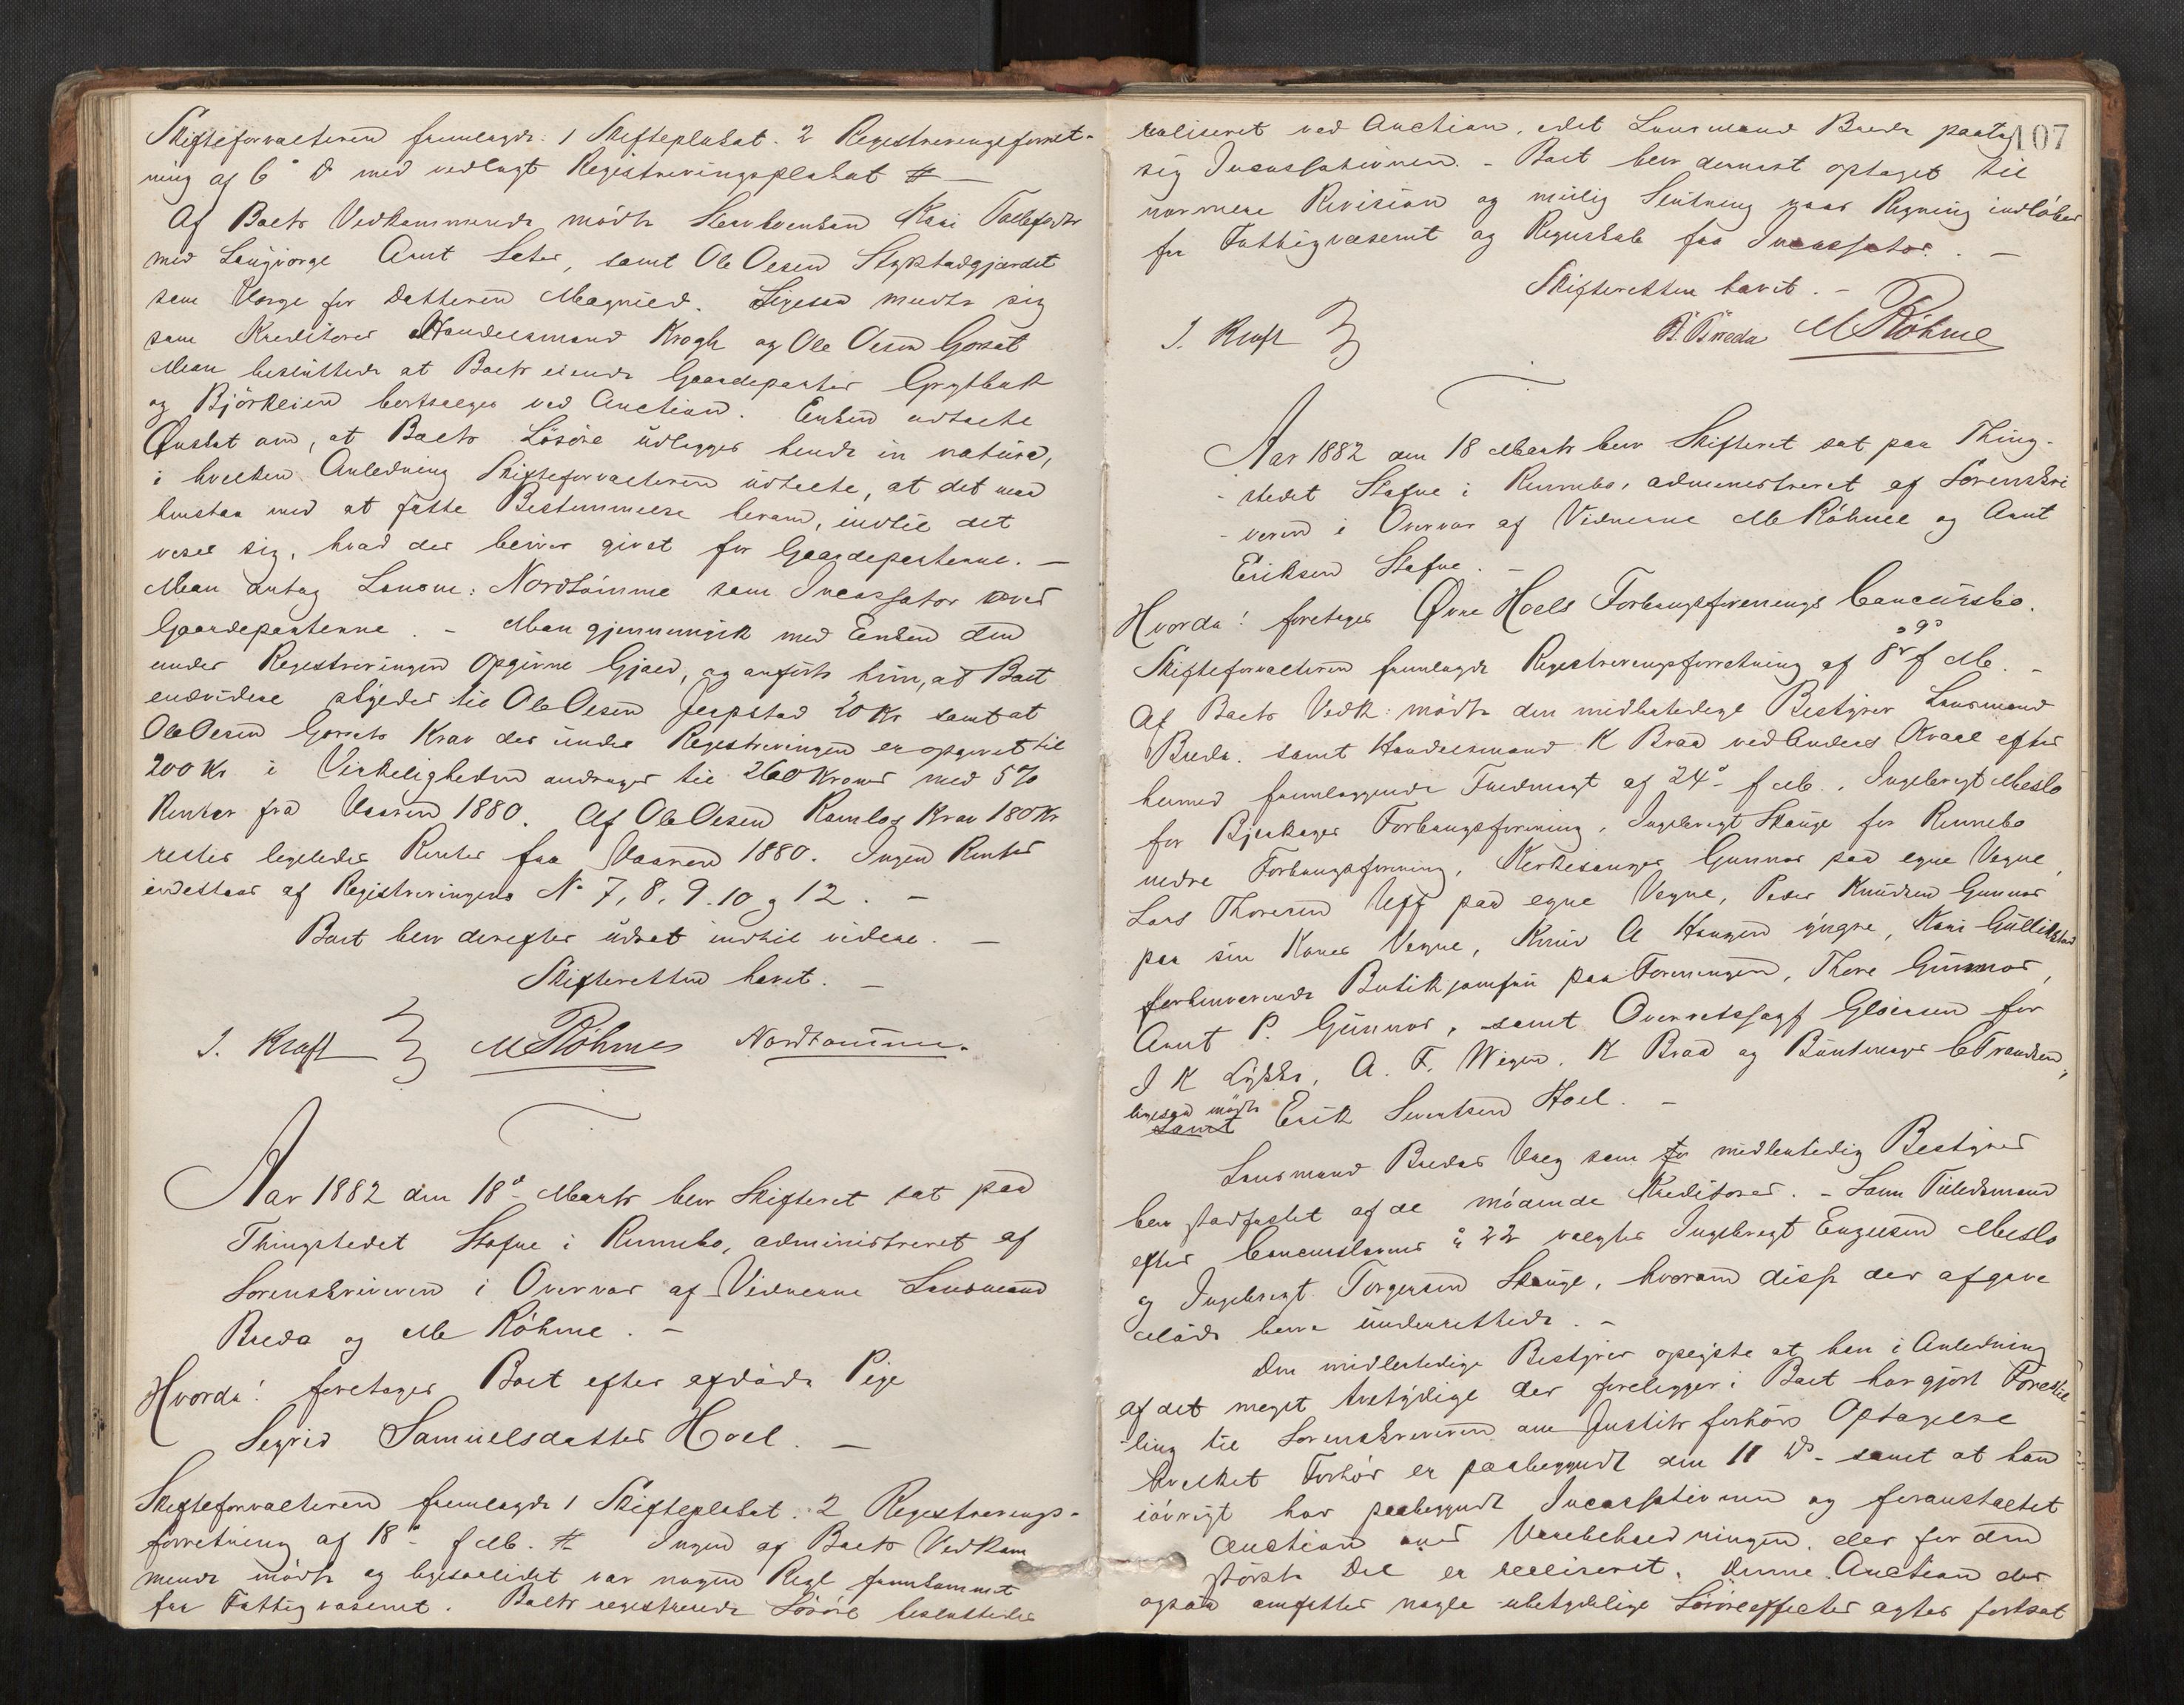 Skifteforvalteren fremlagde: 1 Skifteplakat. 2 Registreringsforret-
ning af 6' D med vedlagt Registreringsplakat #—
Af Boets Vedkommende mødte Stervboenken Kari Tollefsdtr
med Laugværge Arnt Seter, samt Ole Olsen Skjpstadgjærdet
som Værge for Datteren Magnild. Ligesaa meldte sig
som Kreditorer Handelsmand Krogh og Ole Olsen Gorset
Man besluttede at Boets eiende Gaardeparter Grytbak
og Bjørkeien bortsælges ved Auction. Enken udtalte
Ønsket om, at Boets Løsøre udlægges hende in natura,
i hvilken Anledning Skifteforvalteren udtalte, at det maa
henstaa med at fatte Bestemmelse herom, indtil det
viser sig, hvad der bliver givet for Gaardeparterne. —
Man antog Lensm: Nordtømme som Incassator ved
Gaardeparterne. - Man gjennemgik med Enken den
under Registreringen opgivne Gjæld, og anførte hun, at Boet
endvidere skylder til Ole Olsen Jerpstad 20 Kr samt at
Ole Olsen Gorsets Krav der under Registreringen er opgivet til
200 Kr i Virkeligheden andrager til 260 Kroner med 5 %
Renter fra Vaaren 1880. Af Ole Olsen Ramlos Krav 180 Kr
rester ligeledes Renter fra Vaaren 1880. Ingen Renter
indestaar af Registreringens No 7, 8, 9. 10 og 12. —
Boet blev derefter udsat indtil videre. —
Skifteretten hævet. —
J. Kraft M Röhme Nordtømme.
Aar 1882 den 18' Marts blev Skifteret sat paa
Thingstedet Stafne i Rennebo, administreret af
Sorenskriveren i Overvær af Vidnerne Lensmand
Breda og M Röhme. —
Hvorda! foretages Boet efter afdøde Pige
Sigrid Samuelsdatter Hoel. —
Skifteforvalteren fremlagde 1 Skifteplakat. 2 Registrerings-
forretning af 18' f M. # Ingen af Boets Vedkom
mende mødte og ligesaalidet var nogen Regl fremkommet
fra Fattigvæsenet. Boets registrerede Løsøre besluttedes
107
realiseret ved Auction, idet Lensmand Breda paatog
sig Incassationen. - Boet blev dernæst optaget til
nærmere Revision og mulig Slutning naar Regning indløber
fra Fattigvæsenet og Regnskab fra Incassator. —
Skifteretten hævet. -
J. Kraft B. Breda M Röhme
Aar 1882 den 18 Marts blev Skifteret sat paa Thing-
stedet Stafne i Rennebo, administreret af Sorenskri
veren i Overvær af Vidnerne M Röhme og Arnt
Eriksen Stafne. -
Hvorda! foretages Øvre Hoels Forbrugsforenings Concursbo.
Skifteforvalteren fremlagde Registreringsforretning af 8' og 9' f M. -
Af Boets Vedk: mødte den midlertidige Bestyrer Lensmand
Breda. samt Handelsmand K Braa ved Anders Kvaal efter
hermed fremlæggende Fuldmagt af 24' f M., Ingebrigt Meslo
for Bjerkager Forbrugsforening, Ingebrigt Stauge for Rennebo
nedre Forbrugsforening, Kirkesanger Gunnes paa egne Vegne,
Lars Thoresen Uff paa egne Vegne, Peder Knudsen Gunnes
paa sin Kones Vegne, Knud A Haugen yngre, Kari Gullikstad
forhenværende Butikjomfru paa Foreningen, Thore Gunnes,
Arnt P. Gunnes, samt Overretssagf Gløersen for
J K Lykke, A. F. Wigen, K Braa og Buntmager C Trondsen,
ligesaa mødte Erik Sivertsen Hoel. —
samt
Lensmand Bredas Valg som midlertidig Bestyrer
blev stadfæstet af de mødende Kreditorer. - Som Tillidsmænd
efter Concurslovens § 22 valgtes Ingebrigt Engelsen Meslo
og Ingebrigt Torgersen Stauge, hvorom disse der afgave
Møde bleve underrettede. -
Den midlertidige Bestyrer oplyste at han i Anledning
af det meget tvetydige der foreligger i Boet har gjort Forestil
ling til Sorenskriveren om Justits forhørs Optagelse
hvilket Forhør er paabegyndt den 11 ds - samt at han
iøvrigt har paabegyndt Incassationen og foranstaltet
Auction over Varebeholdningen, der for den
største Del er realiseret. Denne Auction der
ogsaa omfatter nogle ubetydelige Løsøreeffecter agtes fortsat